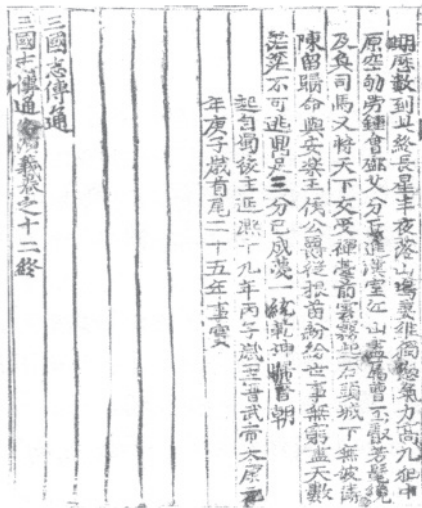 期曆數到此終長星半夜落山塢姜維獨憑氣力高九犯中
原空劬勞鍾會鄧艾分兵進漢室江山盡屬曹丕叡芳髦纔
及奐司馬又將天下交受禪臺前雲霧起石頭城下無波濤
陳留歸命與安樂王侯公爵從根苗紛紛世事無窮盡天數
茫茫不可逃鼎足三分已成夢一統乾坤歸晉朝
起自蜀後主延熙十九年丙子歲至晉武帝太康元
年庚子歲首尾二十五年事實
三國志傳通
三國志傳通俗演義卷之十二終